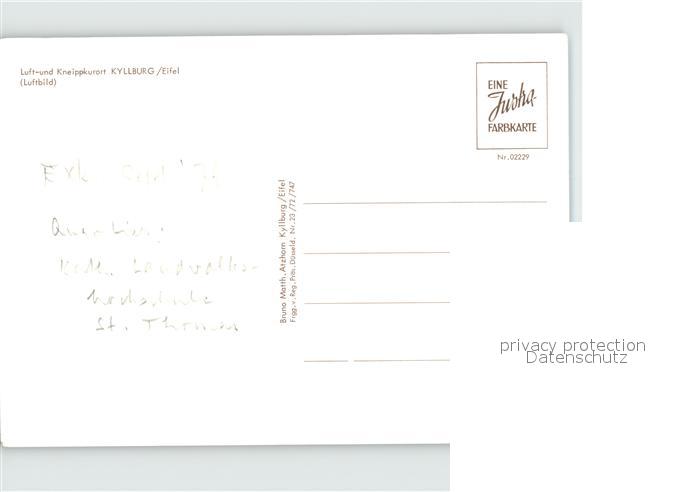 Luft-und Kneippkurort KYLLBURG/Eifel
(Luftbild)
EINE
Juska-
FARBKARTE
Nr. 02229
Quartier:
Kath. Landvolks-
hochschule
St. Thomas
Bruno Matth. Atzhorn Kyllburg/Eifel
Frgg. v. Reg. Präs. Düsseld. Nr. 23/72/747
privacy protection
Datenschutz